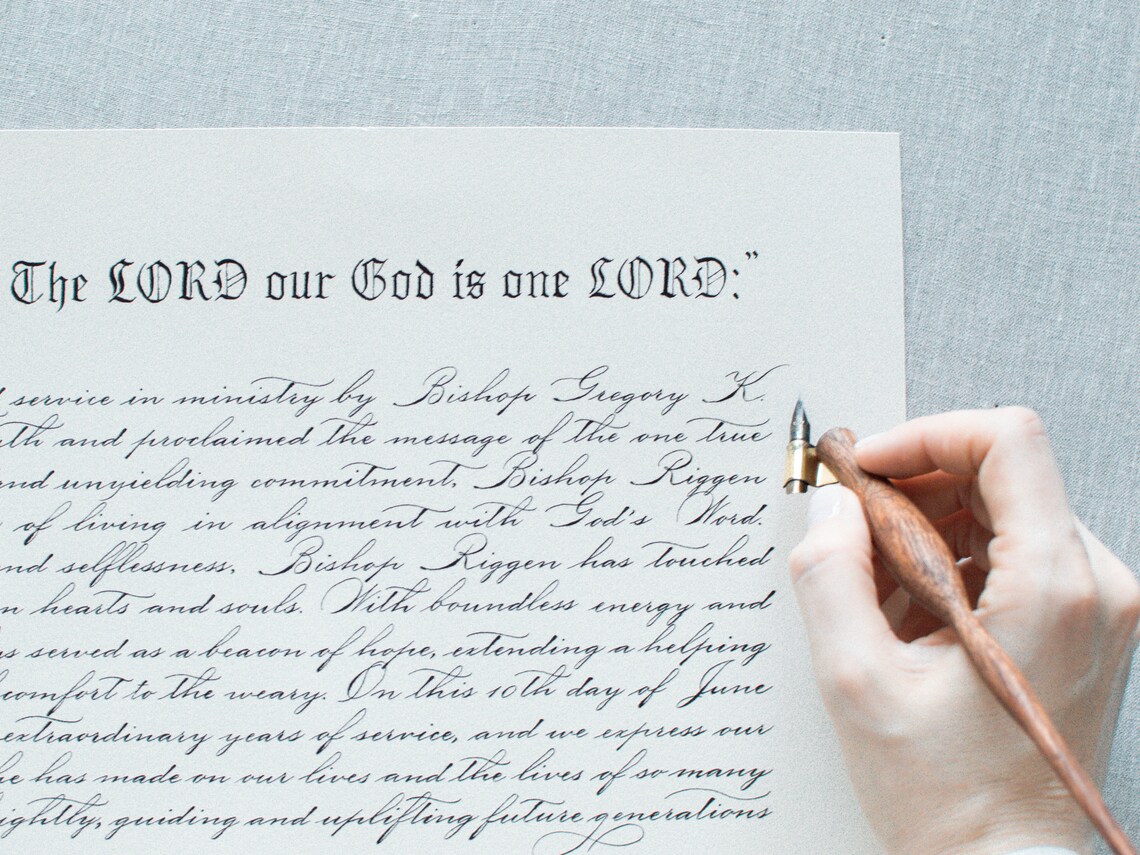 The LORD our God is one LORD:”
service in ministry by Bishop Gregory K.
and proclaimed the message of the one true
and unyielding commitment, Bishop Riggen
of living in alignment with God's Word.
and selflessness, Bishop Riggen has touched
hearts and souls. With boundless energy and
served as a beacon of hope, extending a helping
comfort to the weary. On this 10th day of June
extraordinary years of service, and we express our
he has made on our lives and the lives of so many
guiding and uplifting future generations